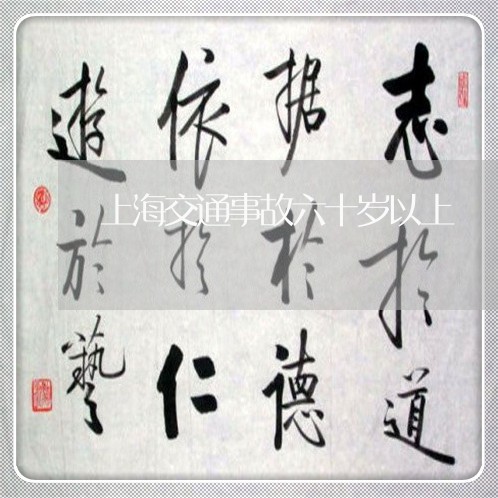 志於道
据於德
依於仁
遊於藝
上海交通事故六十岁以上